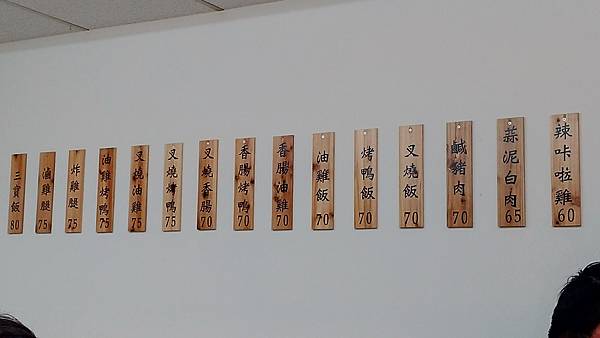 辣咔啦雞60
蒜泥白肉65
鹹豬肉70
叉燒飯70
烤鴨飯70
油雞飯70
香腸油雞70
香腸烤鴨70
叉燒香腸70
叉燒烤鴨75
叉燒油雞75
油雞烤鴨75
炸雞腿75
滷雞腿75
三寶飯80